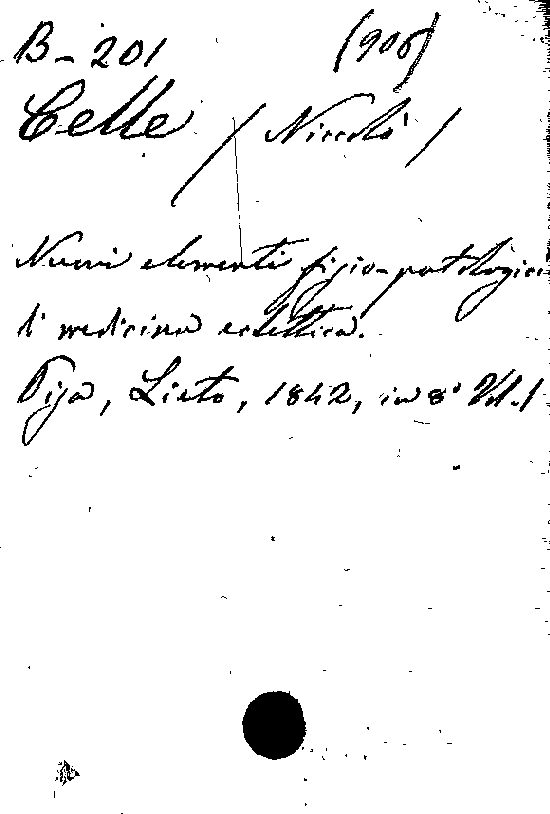 B-201 (906)
Celle / Niccolò /
Nuovi elementi fisio-patologici
di medicina eclettica.
Pisa, Lieto, 1842, in 8° Vol. 1